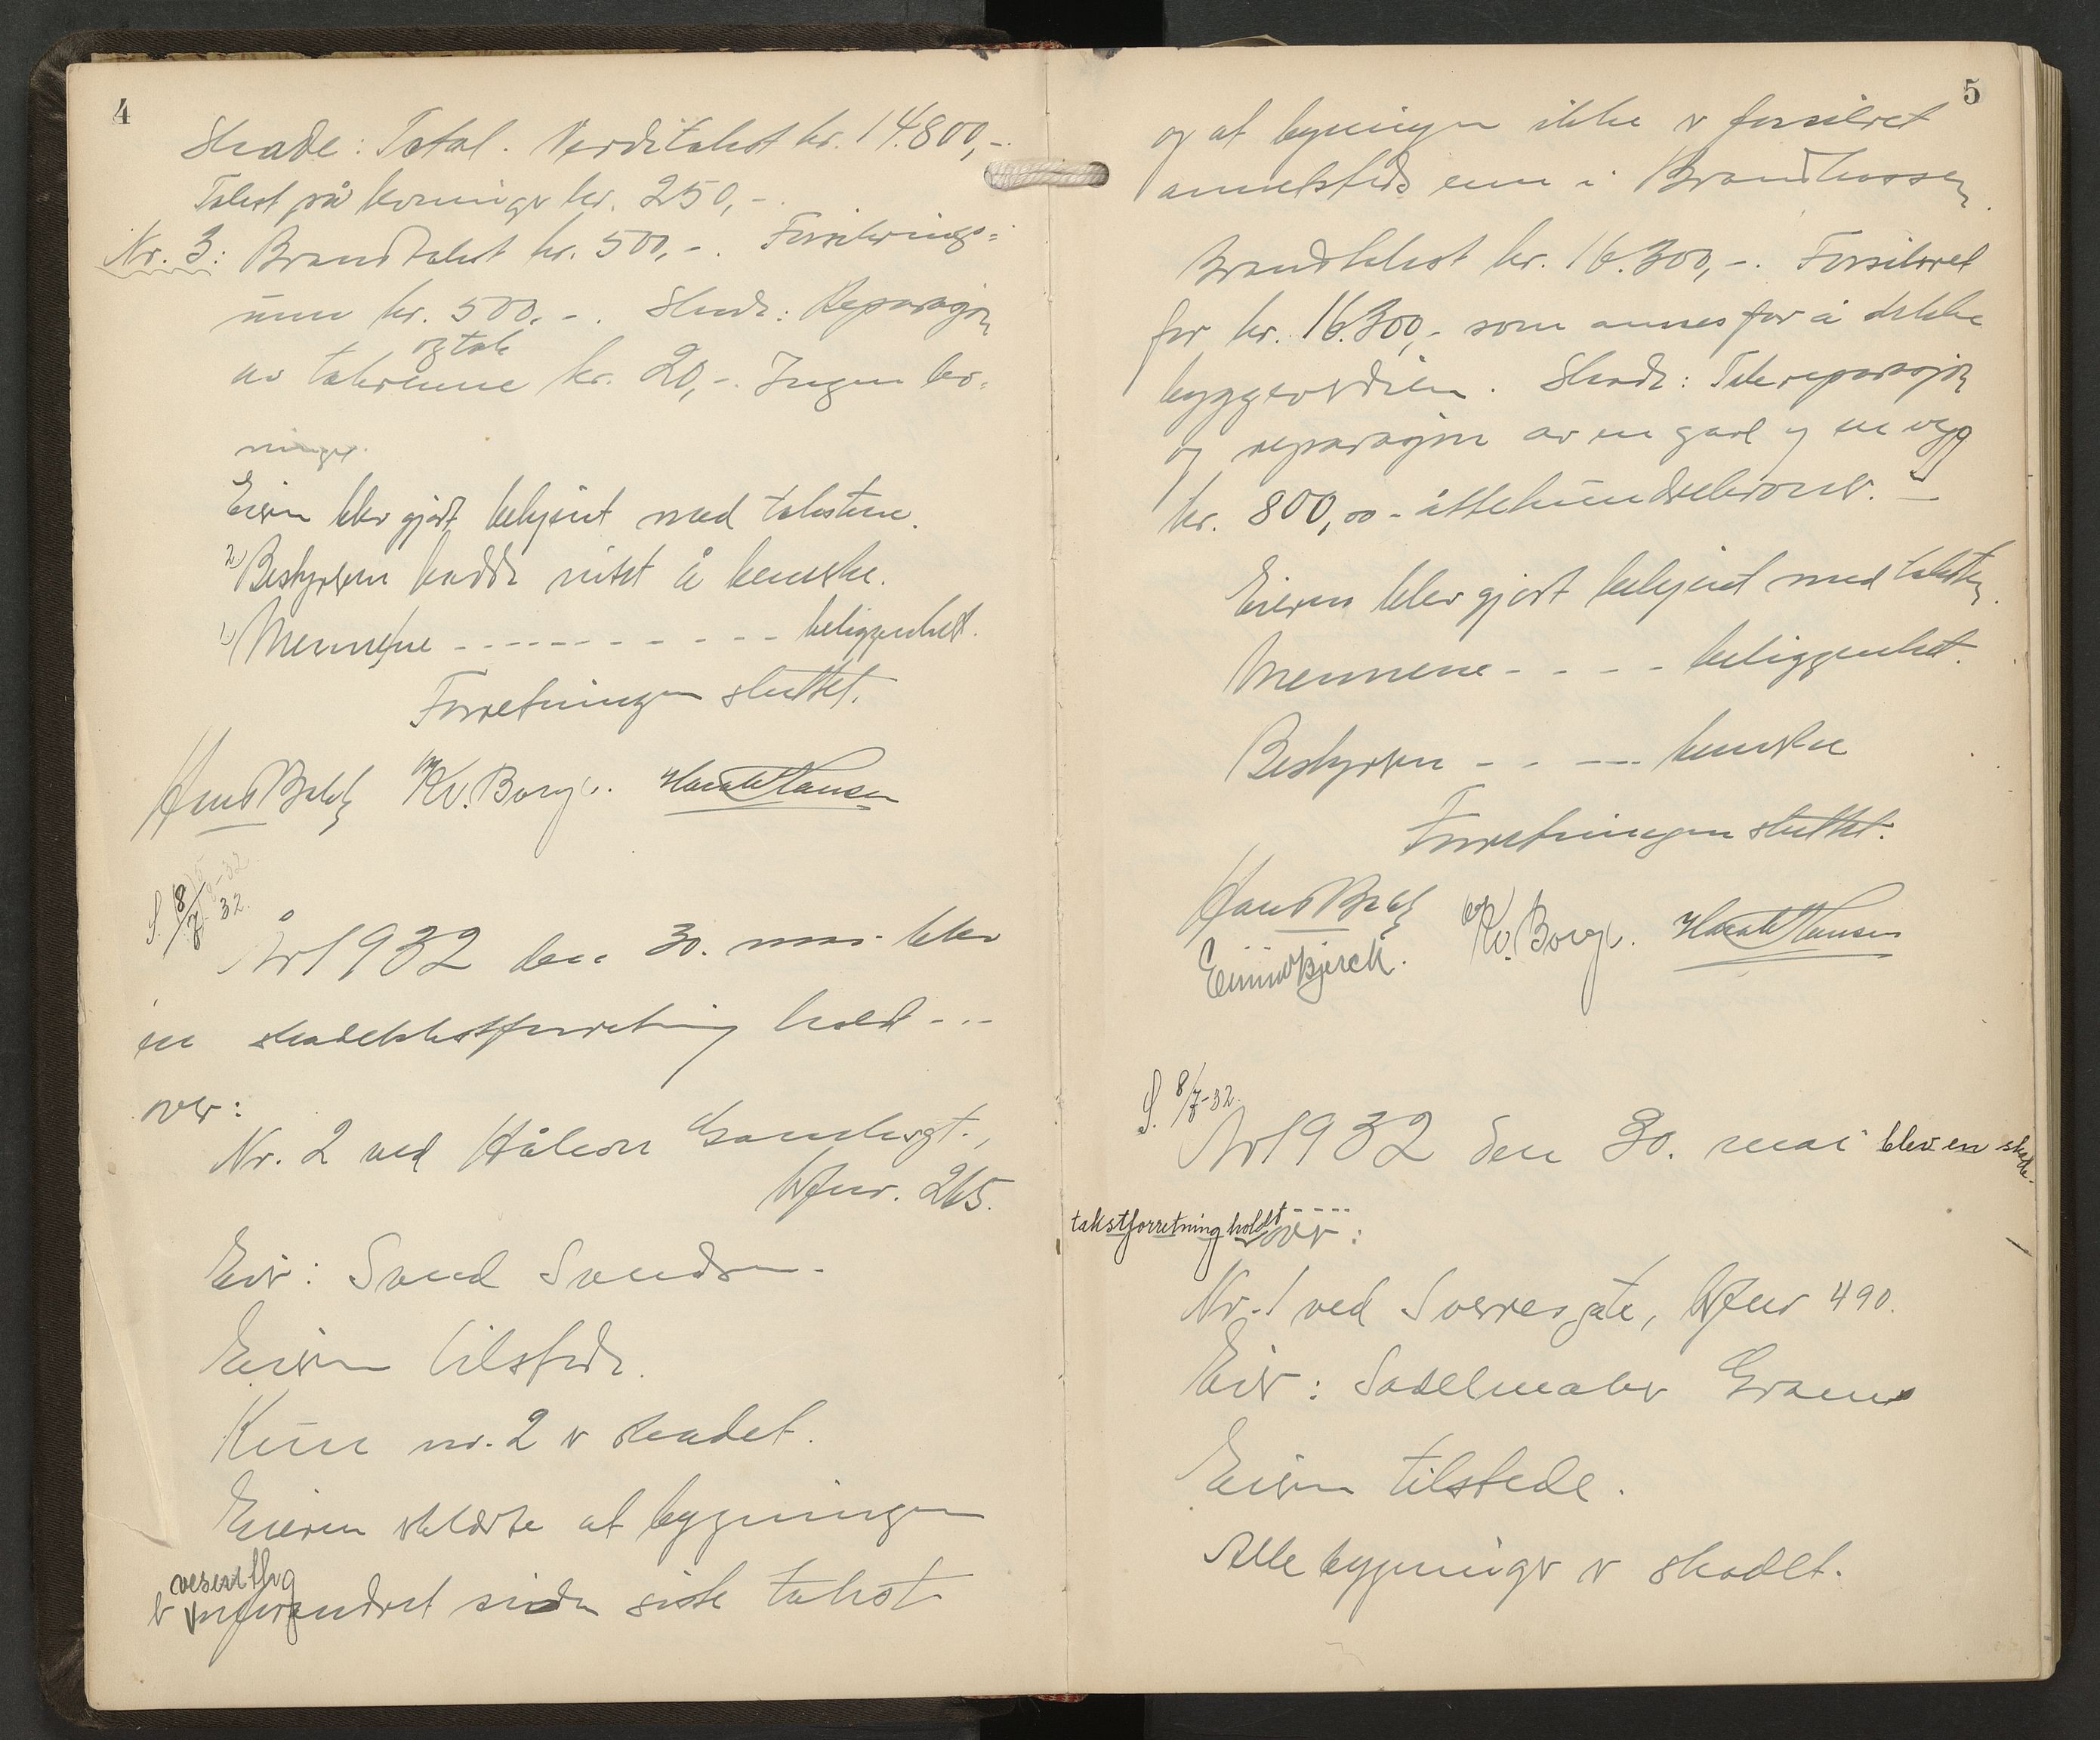 4
Skade: Total. Verditakst kr. 14.800,-.
Takst på levninger kr. 250,-.
Nr. 3: Brandtakst kr. 500,-. Forsikrings=
sum kr. 500,-. Skade: Reparasjon
og tak
av takrenne kr. 20,-. Ingen lev=
ninger.
Eieren blev gjort bekjent med taksten.
2) Bestyreren hadde intet å bemerke.
1) Mennene - - - - - - - - - - beliggenhet.
Forretningen sluttet.
Kr. Borge. Harald Hansen
S. 8/7 32.
År 1932 den 30. mai blev
en skadetakstforretning holdt - - -
over:
Nr. 2 ved Håkon gt.,
brfnr. 265.
Eier: Svend Svendsen.
Eieren tilstede.
Kun nr. 2 er skadet.
Eieren erklærte at bygningen
vesentlig
er uforandret siden siste takst
5
og at bygningen ikke er forsikret
annetsteds enn i Brandkassen.
Brandtakst kr. 16.300,-. Forsikret
for kr. 16.300,- som ansees for å dekke
byggeverdien. Skade: Takreparasjon
og reparasjon av en gavl og en vegg
kr. 800,00 - åttehundrekroner. -
Eieren blev gjort bekjent med taksten.
Mennene - - - - beliggenhet.
Bestyreren - - - - - bemerke
Forretningen sluttet.
Kr. Borge. Harald Hansen
S. 8/7-32.
År 1932 den 30. mai blev en skade-
takstforretning holdt - - - - - over:
Nr. 1 ved Sverresgate, brfnr 490.
Eier: Sadelmaker Grams
Eieren tilstede.
Alle bygninger er skadet.